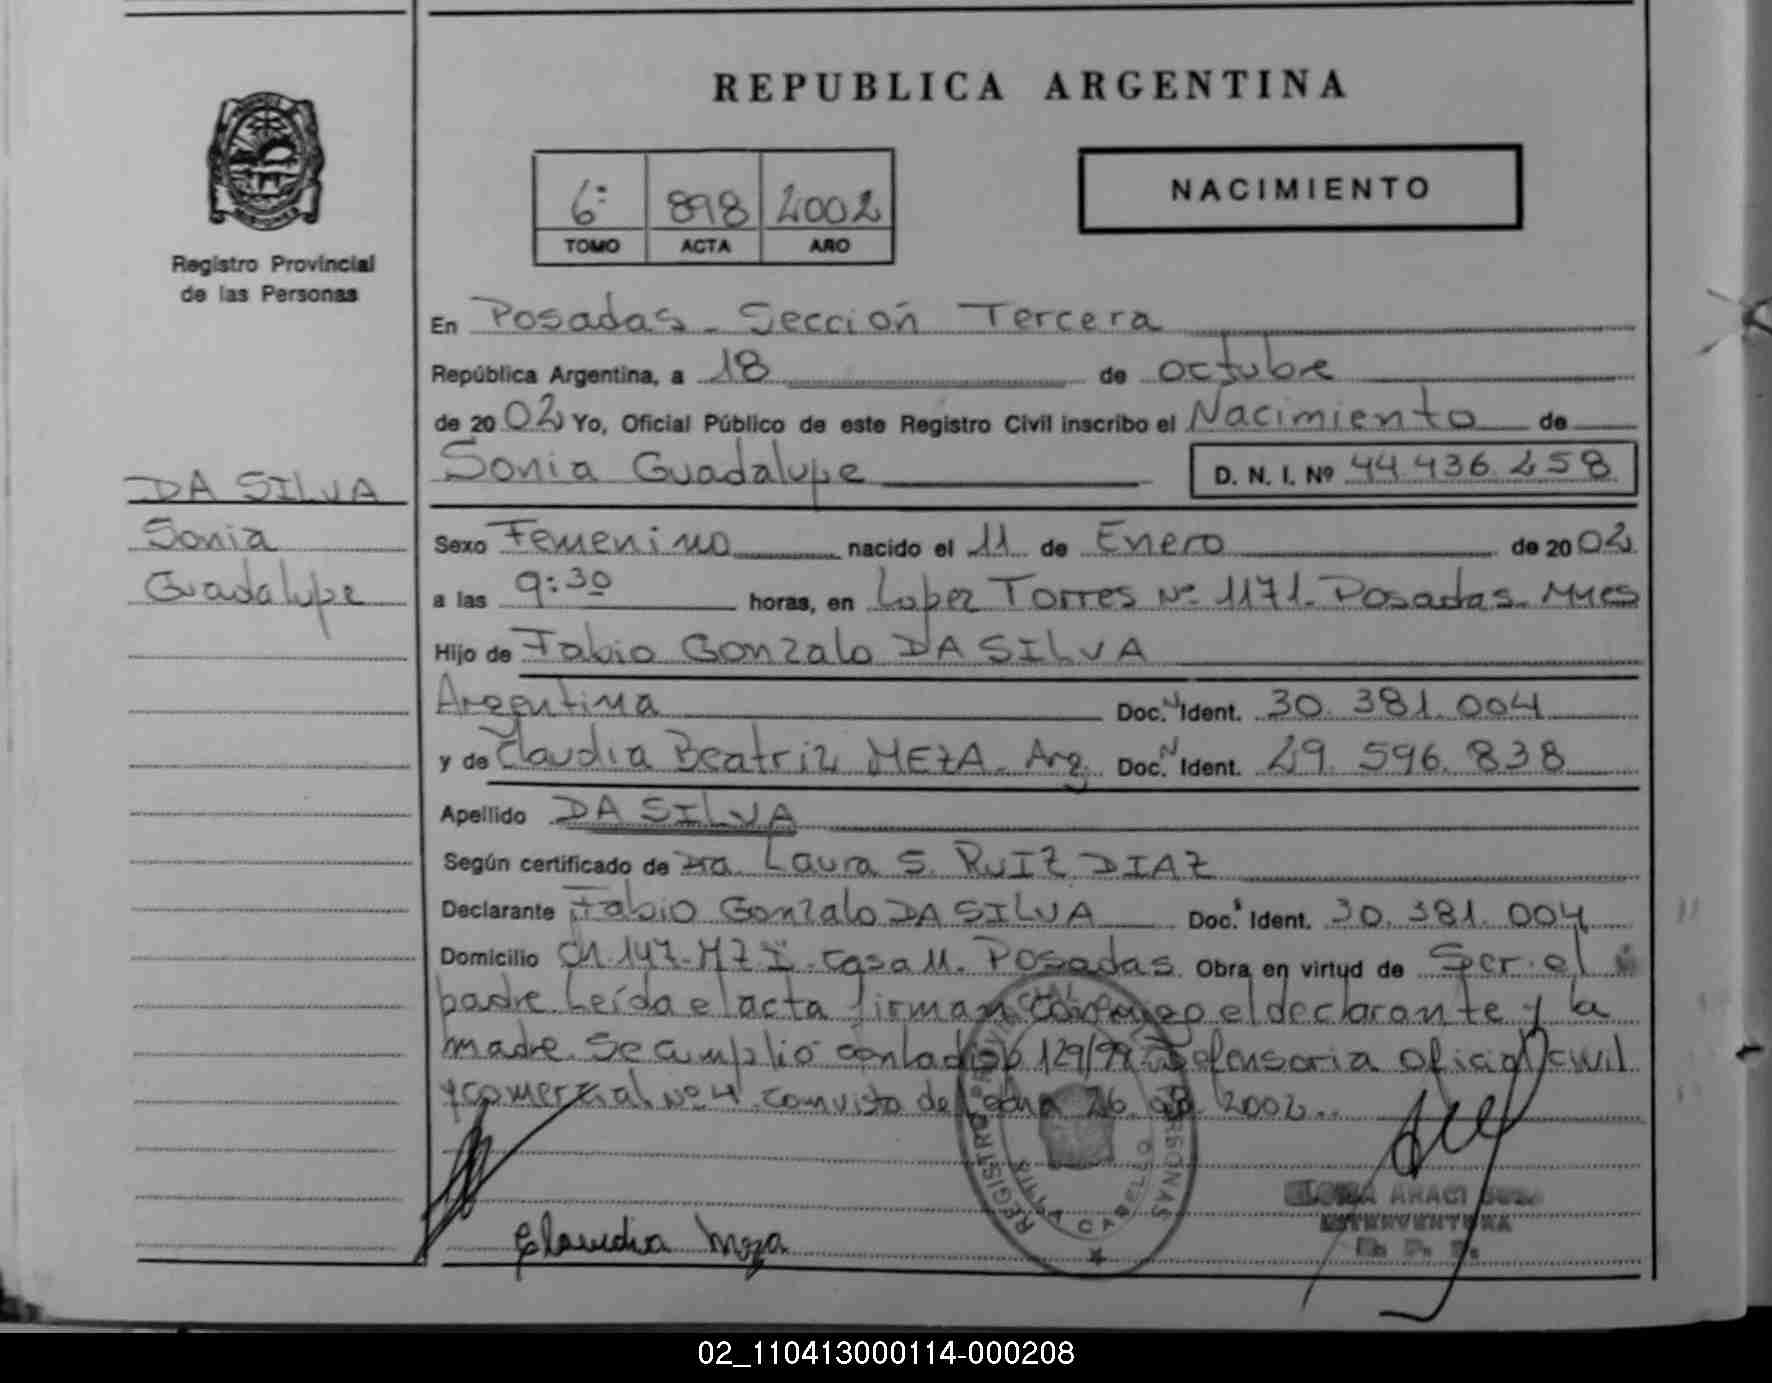 REPUBLICA ARGENTINA
6º 898 2002
TOMO ACTA AÑO
NACIMIENTO
Registro Provincial
de las Personas
En Posadas - Sección Tercera
República Argentina, a 18 de octubre
de 2002 Yo, Oficial Público de este Registro Civil inscribo el Nacimiento de
Sonia Guadalupe D. N. I. Nº 44.436.258
DA SILVA
Sonia
Guadalupe
Sexo Femenino nacido el 11 de Enero de 2002
a las 9:30 horas, en Lopez Torres Nº 1171. Posadas. Mnes
Hijo de Fabio Gonzalo DA SILVA
Argentina Doc. N Ident. 30.381.004
y de Claudia Beatriz MEZA. Arg. Doc. N Ident. 29.596.838
Apellido DA SILVA
Según certificado de Dra. Laura S. RUIZ DIAZ
Declarante Fabio Gonzalo DA SILVA Doc. Ident. 30.381.004
Domicilio Ch. 147. MZ I. casa 11. Posadas. Obra en virtud de Ser el
padre. Leída el acta firman conmigo el declarante y la
madre. Se cumplió con la disp 129/99 Defensoria Oficial civil
y comercial Nº 4. con visto de fecha 26. 2002..
REGISTRO PERSONAS
VILLA CABELLO
Claudia Meza
INTERVENTORA
R. P. P.
02_110413000114-000208